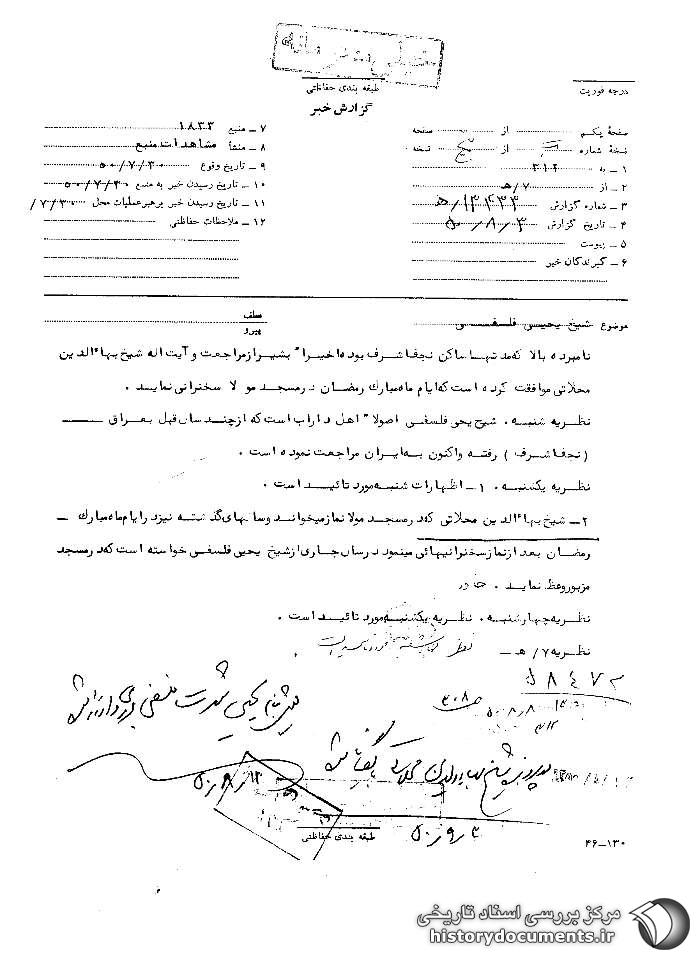 طبقه بندی حفاظتی
گزارش خبر
درجه فوریت
صفحهٔ یکم از صفحه
نسخهٔ شماره از پنج نسخه
۱ ـ به ۳۱۲
۲ ـ از ۷/ه‍
۳ ـ شماره گزارش ۱۳۴۳۳/ه‍
۴ ـ تاریخ گزارش ۵۰/۸/۳
۵ ـ پیوست
۶ ـ گیرندگان خبر
۷ ـ منبع ۱۸۳۳
۸ ـ منشأ مشاهدات منبع
۹ ـ تاریخ وقوع ۵۰/۷/۳۰
۱۰ ـ تاریخ رسیدن خبر به منبع ۵۰/۷/۳۰
۱۱ ـ تاریخ رسیدن خبر برهبر عملیات محل ۷/۳۰/
۱۲ ـ ملاحظات حفاظتی
موضوع شیخ یحیی فلسفی
عطف
پیرو
نامبرده بالا که مدتها ساکن نجف اشرف بوده اخیرا" بشیراز مراجعت و آیت اله شیخ بها⁠ء الدین
محلاتی موافقت کرده است که ایام ماه مبارک رمضان در مسجد مولا سخنرانی نماید .
نظریه شنبه . شیخ یحی فلسفی اصولا" اهل داراب است که از چند سال قبل بعراق
( نجف اشرف ) رفته و اکنون به ایران مراجعت نموده است .
نظریه یکشنبه . ۱ ـ اظهارات شنبه مورد تائید است .
۲ ـ شیخ بها⁠ء الدین محلاتی که در مسجد مولا نماز میخواند و سالهای گذشته نیز در ایام ماه مبارک ـ
رمضان بعد از نماز سخنرانیهائی مینمود در سال جاری از شیخ یحیی فلسفی خواسته است که در مسجد
مزبور وعظ نماید .
نظریه چهارشنبه . نظریه یکشنبه مورد تائید است .
نظریه ۷/ ه‍ ـ
۵۸۴۷۲
۵۰/۸/۸
طبقه بندی حفاظتی
۴۶ـ۱۳۰
مرکز بررسی اسناد تاریخی
historydocuments.ir